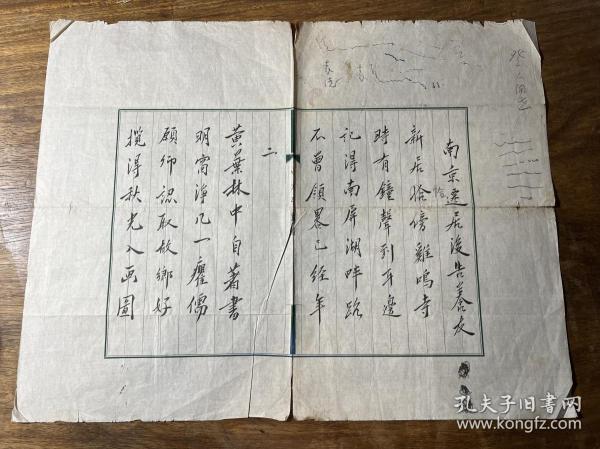 南京遷居後告養友
新居恰傍雞鳴寺
時有鐘聲到耳邊
記得南屏湖畔路
不曾領畧已經年
二
黃葉林中自著書
明窗淨几一癯儒
願卿認取故鄉好
攬得秋光入画圖
孔夫子旧书网
www.kongfz.com